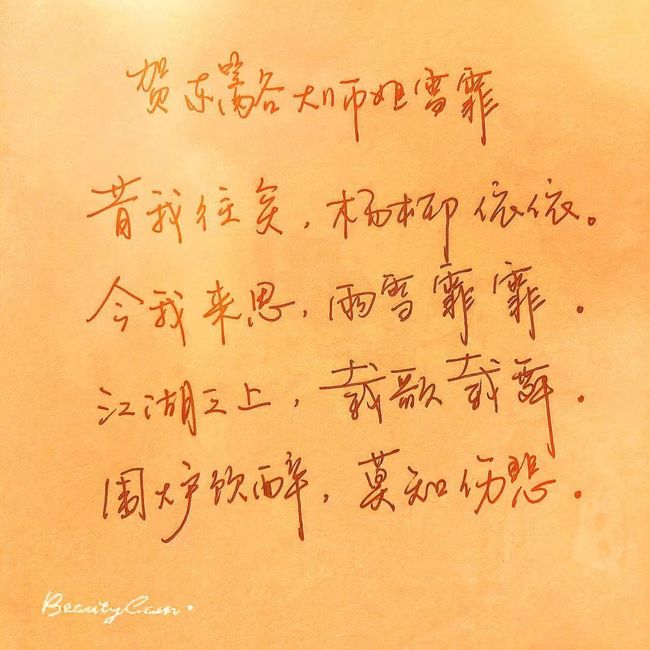 贺东篱谷大师姐雪霏
昔我往矣，杨柳依依。
今我来思，雨雪霏霏。
江湖之上，载歌载舞。
围炉饮醉，莫知伤悲。
BeautyCam.